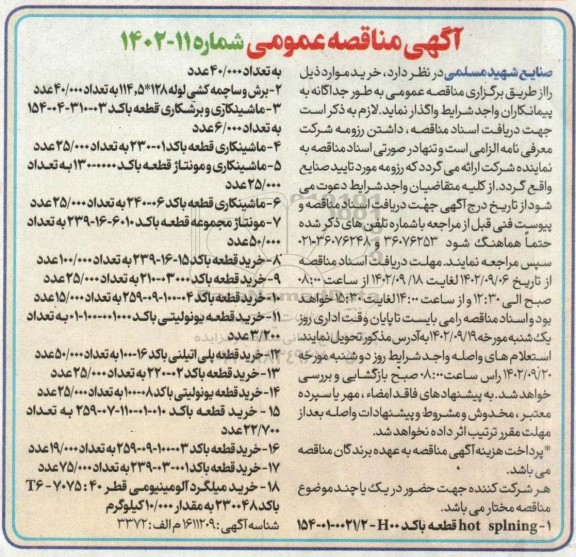 آگهی مناقصه عمومی شماره ۱۱-۱۴۰۲
صنایع شهید مسلمی در نظر دارد، خرید موارد ذیل
را از طریق برگزاری مناقصه عمومی به طور جداگانه به
پیمانکاران واجد شرایط واگذار نماید. لازم به ذکر است
جهت دریافت اسناد مناقصه، داشتن رزومه شرکت
معرفی نامه الزامی است و تنها در صورتی اسناد مناقصه به
نماینده شرکت ارائه می گردد که رزومه مورد تایید صنایع
واقع گردد. از کلیه متقاضیان واجد شرایط دعوت می
شود از تاریخ درج آگهی جهت دریافت اسناد مناقصه و
پیوست فنی قبل از مراجعه با شماره تلفن های ذکر شده
حتماً هماهنگ شود ۳۶۰۷۶۲۵۳ و ۳۶۰۷۶۲۴۸-۰۲۱
سپس مراجعه نمایند. مهلت دریافت اسناد مناقصه
از تاریخ ۱۴۰۲/۰۹/۰۶ لغایت ۱۴۰۲/۰۹/۱۸ از ساعت ۰۸:۰۰
صبح الی ۱۲:۳۰ و از ساعت ۱۴:۰۰ لغایت ۱۵:۳۰ خواهند
بود و اسناد مناقصه را می بایست تا پایان وقت اداری روز
یک شنبه مورخه ۱۴۰۲/۰۹/۱۹ به آدرس مذکور تحویل نمایند
استعلام های واصله واجد شرایط روز دو شنبه مورخه
۱۴۰۲/۰۹/۲۰ راس ساعت ۰۸:۰۰ صبح بازگشایی و بررسی
خواهد شد. به پیشنهاد های فاقد امضاء، مهر یا سپرده
معتبر، مخدوش و مشروط و پیشنهادات واصله بعد از
مهلت مقرر ترتیب اثر داده نخواهد شد.
*پرداخت هزینه آگهی مناقصه به عهده برندگان مناقصه
می باشد.
هر شرکت کننده جهت حضور در یک یا چند موضوع
مناقصه مختار می باشد.
۱- hot splning قطعه باکد H۰۰-۱۵۴-۰۱-۰۰۰۲۱/۲
به تعداد ۴۰/۰۰۰ عدد
۲- برش و ساچمه کشی لوله ۱۲۸*۱۱۴,۵ به تعداد ۴۰/۰۰۰ عدد
۳- ماشینکاری و برشکاری قطعه باکد ۰۳-۳۱۰-۰۴-۱۵۴
به تعداد ۶/۰۰۰ عدد
۴- ماشینکاری قطعه باکد ۰۰۱-۲۳۰ به تعداد ۲۵/۰۰۰ عدد
۵- ماشینکاری و مونتاژ قطعه باکد ۰۰۰۰۰-۱۳۰ به تعداد
۲۵/۰۰۰ عدد
۶- ماشینکاری قطعه باکد ۰۰۶-۲۴۰ به تعداد ۲۵/۰۰۰ عدد
۷- مونتاژ مجموعه قطعه باکد ۶۰۱۰-۱۶-۲۳۹ به تعداد
۵۰/۰۰۰ عدد
۸- خرید قطعه باکد ۱۵-۱۶-۲۳۹ به تعداد ۱۰۰/۰۰۰ عدد
۹- خرید قطعه باکد ۰۳۰۰۰-۲۱۰ به تعداد ۲۵/۰۰۰ عدد
۱۰- خرید قطعه باکد ۰۴-۱۰۰-۰۹-۲۵۹ به تعداد ۱۵/۰۰۰ عدد
۱۱- خرید قطعه یونولیتی باکد ۱۰۰۰-۱۰۰-۰۱ به تعداد
۳/۲۰۰ عدد
۱۲- خرید قطعه پلی اتیلنی باکد ۱۶-۱۰۰ به تعداد ۵۰/۰۰۰ عدد
۱۳- خرید قطعه باکد ۰۰۲-۲۲۰ به تعداد ۲۵/۰۰۰ عدد
۱۴- خرید قطعه یونولیتی باکد ۰۰۸-۱۰۰ به تعداد ۲۵/۰۰۰ عدد
۱۵- خرید قطعه باکد ۰۱۰-۰۱-۱۱۰-۰۷-۲۵۹ به تعداد
۲۲/۷۰۰ عدد
۱۶- خرید قطعه باکد ۰۳-۱۰۰۰-۰۹-۲۵۹ به تعداد ۱۹/۰۰۰ عدد
۱۷- خرید قطعه باکد ۰۰۱-۰۳-۲۳۹ به تعداد ۷۵/۰۰۰ عدد
۱۸- خرید میلگرد آلومینیومی قطر ۴۰: ۷۰۷۵-T۶
باکد ۲۳۰۰۴۸ به مقدار ۱۰/۰۰۰ کیلوگرم
شناسه آگهی: ۱۶۱۱۲۰۹ م الف: ۳۳۷۲